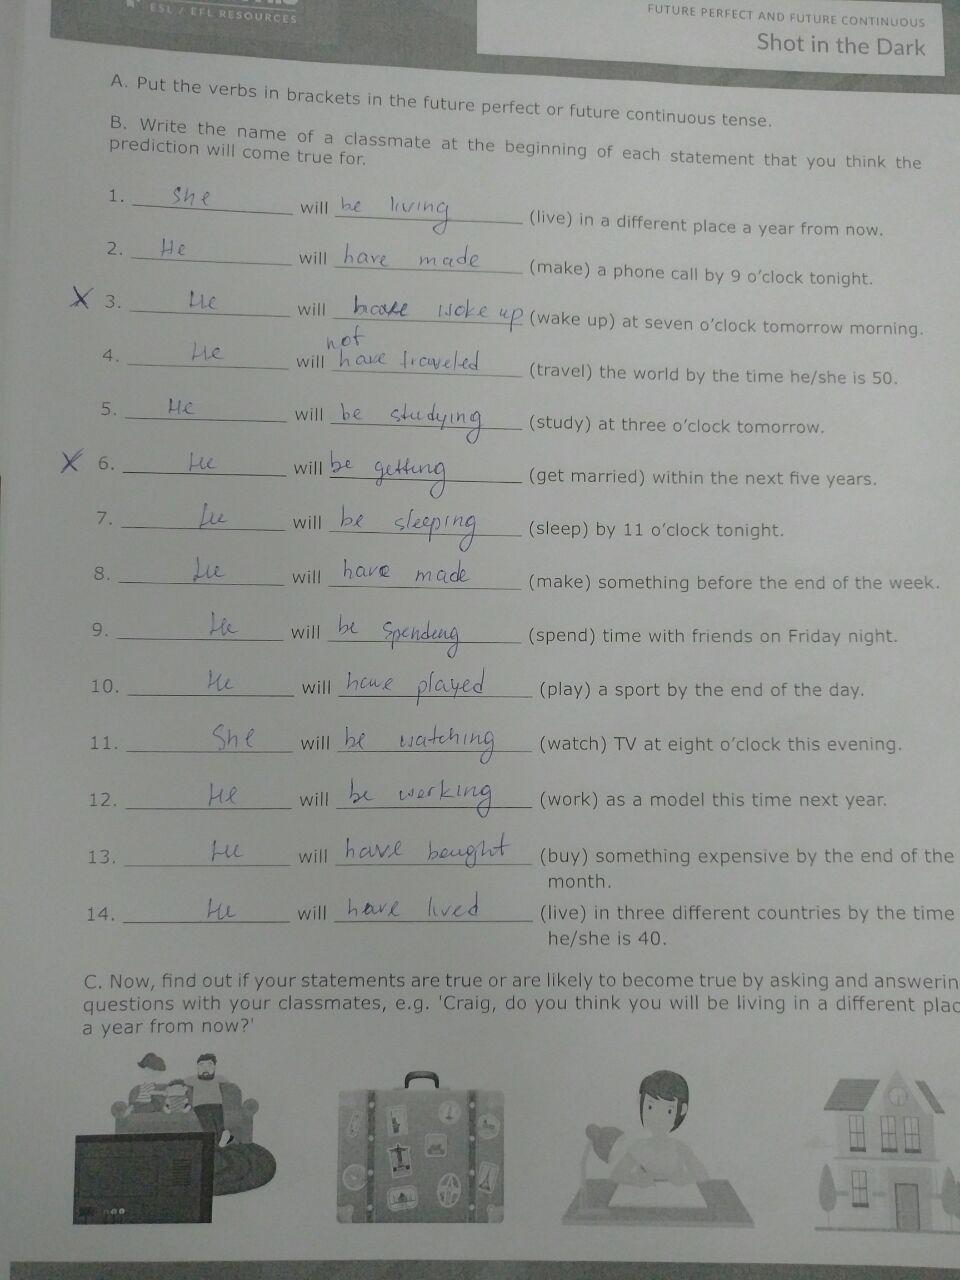 ESL / EFL RESOURCES
FUTURE PERFECT AND FUTURE CONTINUOUS
Shot in the Dark
A. Put the verbs in brackets in the future perfect or future continuous tense.
B. Write the name of a classmate at the beginning of each statement that you think the
prediction will come true for.
1. She will be living (live) in a different place a year from now.
2. He will have made (make) a phone call by 9 o'clock tonight.
X 3. He will woke up (wake up) at seven o'clock tomorrow morning.
not
4. He will have traveled (travel) the world by the time he/she is 50.
5. He will be studying (study) at three o'clock tomorrow.
X 6. He will be getting (get married) within the next five years.
7. He will be sleeping (sleep) by 11 o'clock tonight.
8. He will have made (make) something before the end of the week.
9. He will be spending (spend) time with friends on Friday night.
10. He will have played (play) a sport by the end of the day.
11. She will be watching (watch) TV at eight o'clock this evening.
12. He will be working (work) as a model this time next year.
13. He will have bought (buy) something expensive by the end of the
month.
14. He will have lived (live) in three different countries by the time
he/she is 40.
C. Now, find out if your statements are true or are likely to become true by asking and answerin
questions with your classmates, e.g. 'Craig, do you think you will be living in a different plac
a year from now?'